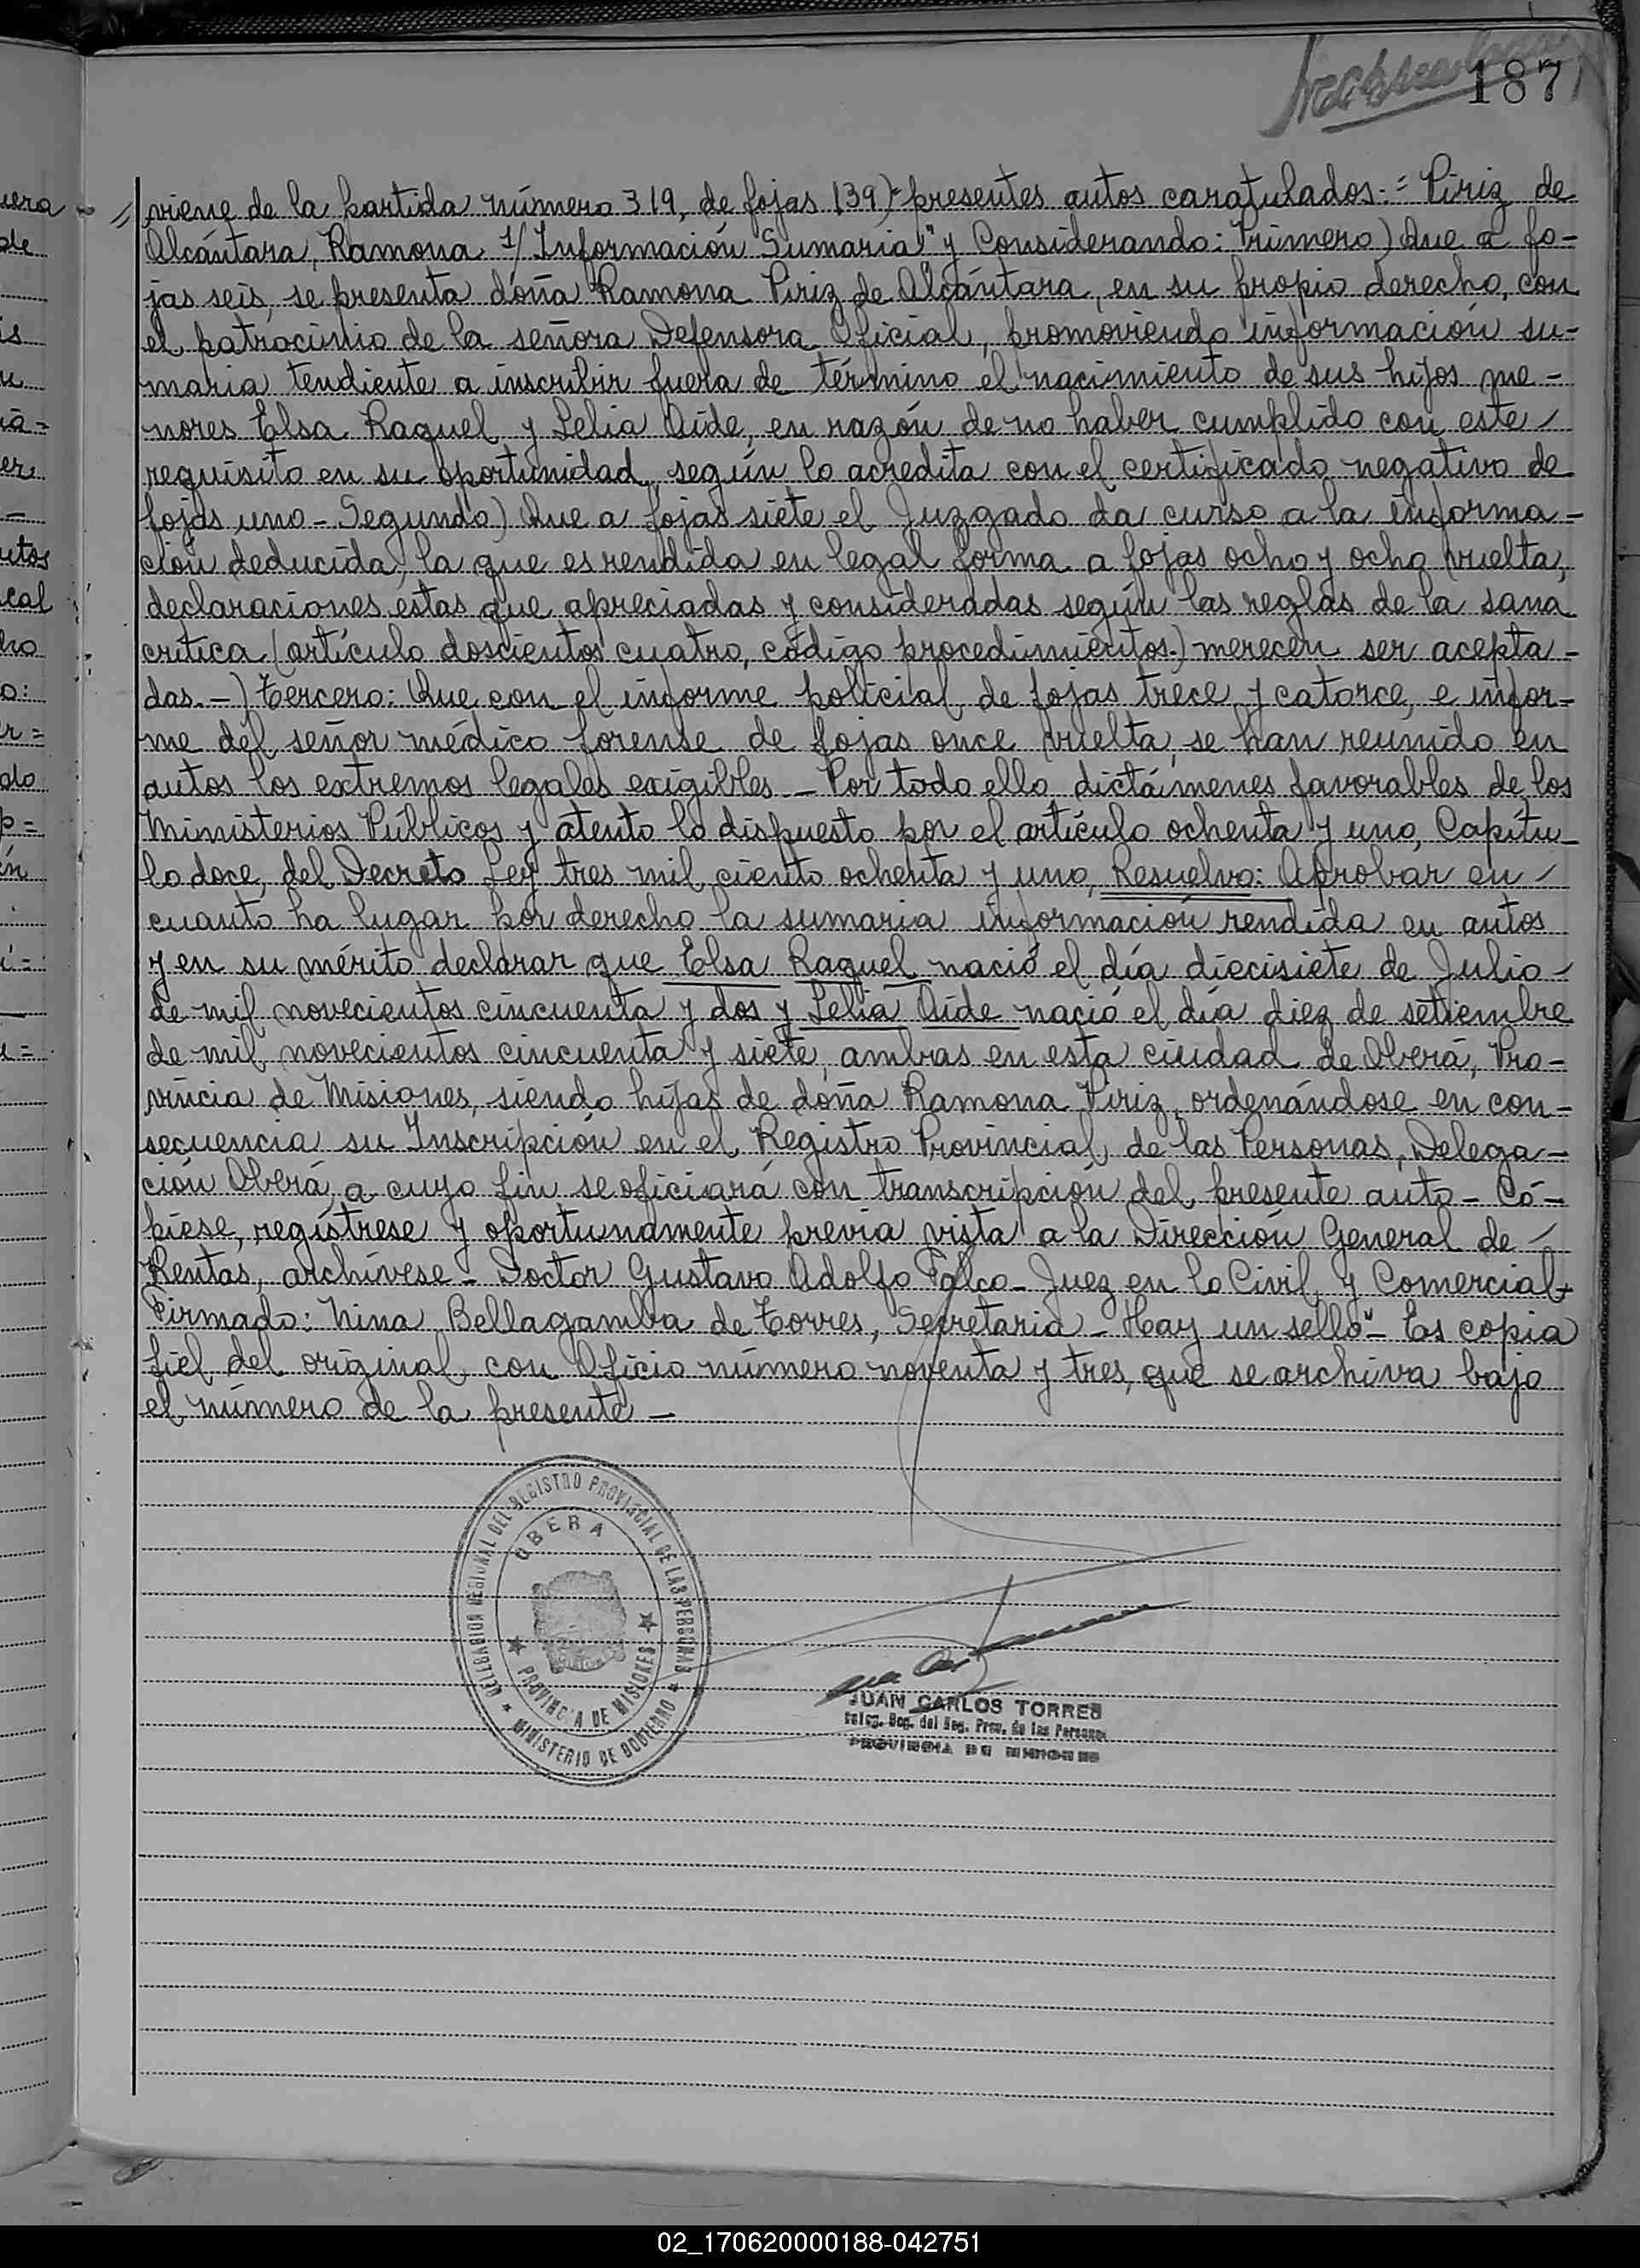 187
viene de la partida número 319, de fojas 139)- presentes autos caratulados:= Piriz de
Alcántara, Ramona s/Información Sumaria" y Considerando: Primero) Que a fo-
jas seis, se presenta doña Ramona Piriz de Alcántara, en su propio derecho, con
el patrocinio de la señora Defensora Oficial, promoviendo información su-
maria tendiente a inscribir fuera de término el nacimiento de sus hijos me-
nores Elsa Raquel y Lelia Aide, en razón de no haber cumplido con este
requisito en su oportunidad, según lo acredita con el certificado negativo de
fojas uno- Segundo) Que a fojas siete el Juzgado da curso a la informa-
ción deducida, la que es rendida en legal forma a fojas ocho y ocho vuelta,
declaraciones éstas que apreciadas y consideradas según las reglas de la sana
crítica (artículo doscientos cuatro, código procedimientos) merecen ser acepta-
das.-) Tercero: Que con el informe policial de fojas trece y catorce, e infor-
me del señor médico forense de fojas once vuelta, se han reunido en
autos los extremos legales exigibles- Por todo ello, dictámenes favorables de los
Ministerios Públicos y atento lo dispuesto por el artículo ochenta y uno, Capítu-
lo doce, del Decreto Ley tres mil ciento ochenta y uno, Resuelvo: Aprobar en
cuanto ha lugar por derecho la sumaria información rendida en autos
y en su mérito declarar que Elsa Raquel nació el día diecisiete de Julio
de mil novecientos cincuenta y dos y Lelia Aide nació el día diez de setiembre
de mil novecientos cincuenta y siete, ambas en esta ciudad de Oberá, Pro-
vincia de Misiones, siendo hijas de doña Ramona Piriz, ordenándose en con-
secuencia su Inscripción en el Registro Provincial de las Personas, Delega-
ción Oberá, a cuyo fin se oficiará con transcripción del presente auto- Có-
piese, regístrese y oportunamente previa vista a la Dirección General de
Rentas, archívese- Doctor Gustavo Adolfo Falco- Juez en lo Civil y Comercial-
Firmado: Nina Bellagamba de Torres, Secretaria- Hay un sello"- Es copia
fiel del original, con Oficio número noventa y tres, que se archiva bajo
el número de la presente-
DELEGACION REGIONAL DEL REGISTRO PROVINCIAL DE LAS PERSONAS
MINISTERIO DE GOBIERNO
OBERA
PROVINCIA DE MISIONES
JUAN CARLOS TORRES
Deleg. Reg. del Reg. Prov. de las Personas
PROVINCIA DE MISIONES
02_170620000188-042751